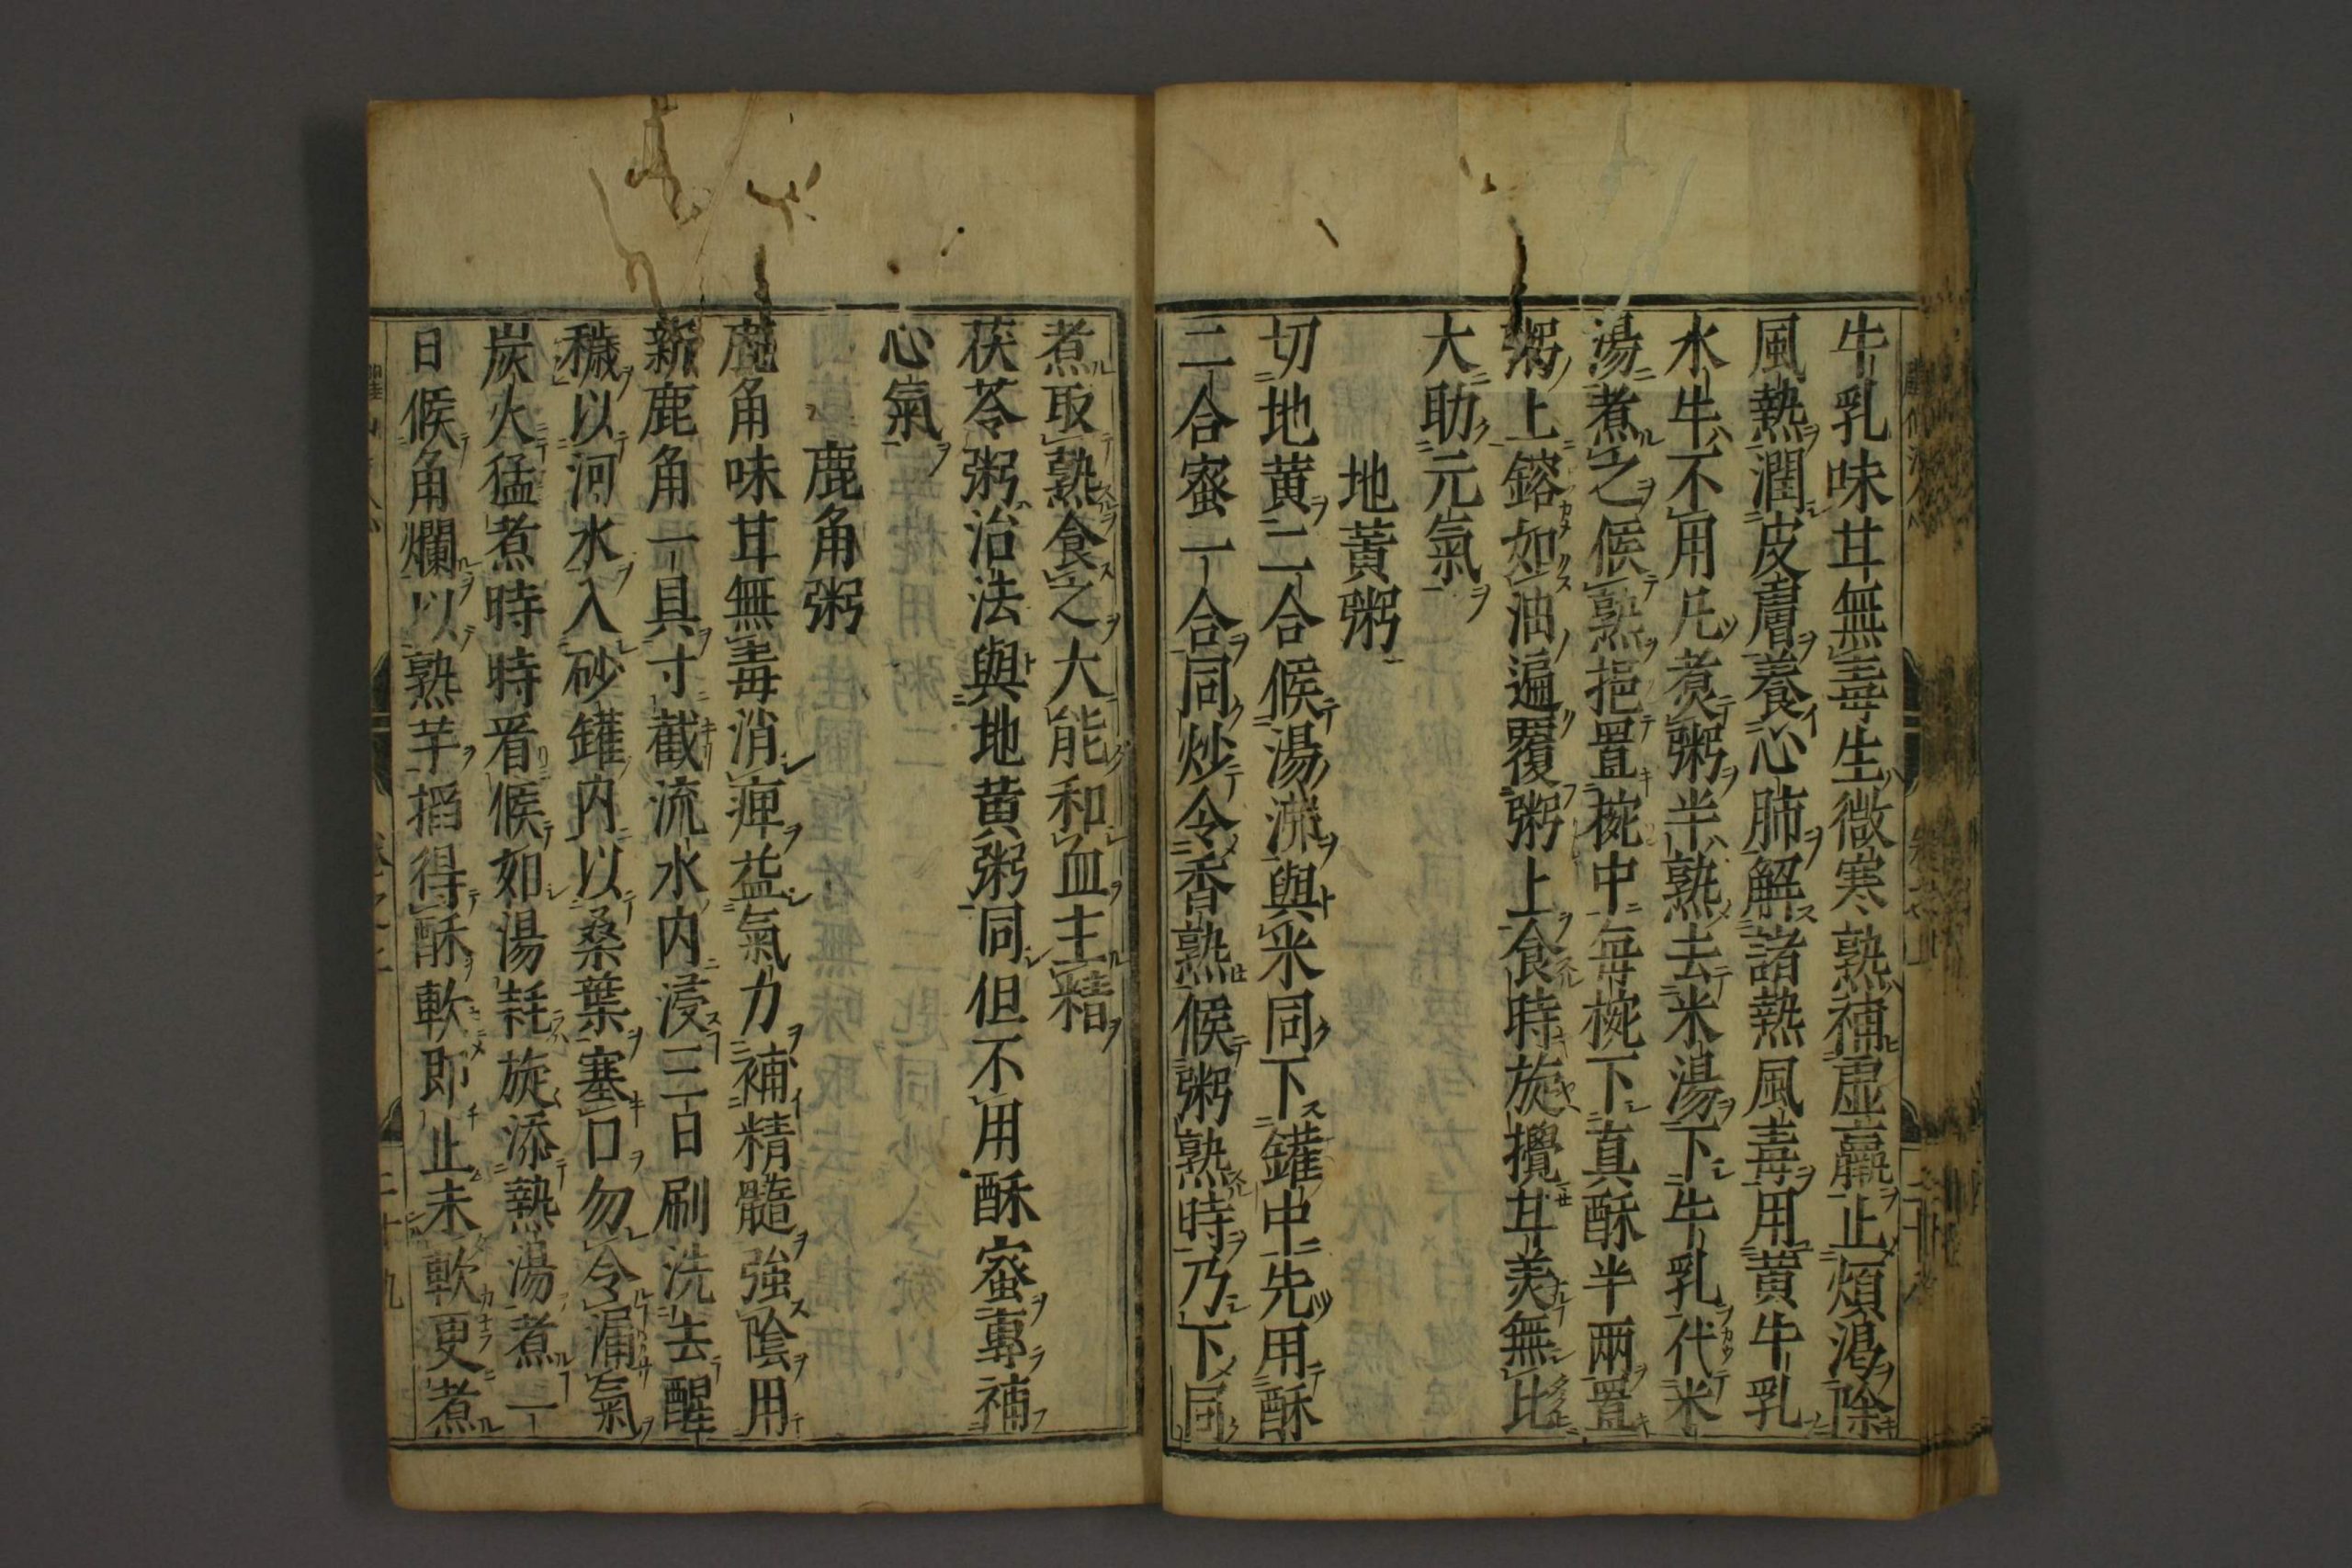 牛乳味甘無毒生微寒熟補虛羸止煩渴除
風熱潤皮膚養心肺解諸熱風毒用黃牛乳
水牛不用凡煑粥半熟去米湯下牛乳代米
湯煮之候熟挹置椀中每椀下真酥半兩置
粥上鎔如油遍覆粥上食時旋攪甘美無比
大助元氣
地黃粥
切地黄二合候湯沸與米同下罐中先用酥
二合蜜一合同炒令香熟候粥熟時乃下同
煮取熟食之大能和血主精
茯苓粥治法與地黄粥同但不用酥蜜專補
心氣
鹿角粥
鹿角味甘無毒消痺益氣力補精髓強陰用
新鹿角一具寸截流水内浸三日刷洗去腥
穢以河水入砂罐内以桑葉塞口勿令漏氣
炭火猛煮時時看候如湯耗旋添熱湯煮一
日候角爛以熟芋搯得酥軟即止未軟更煮